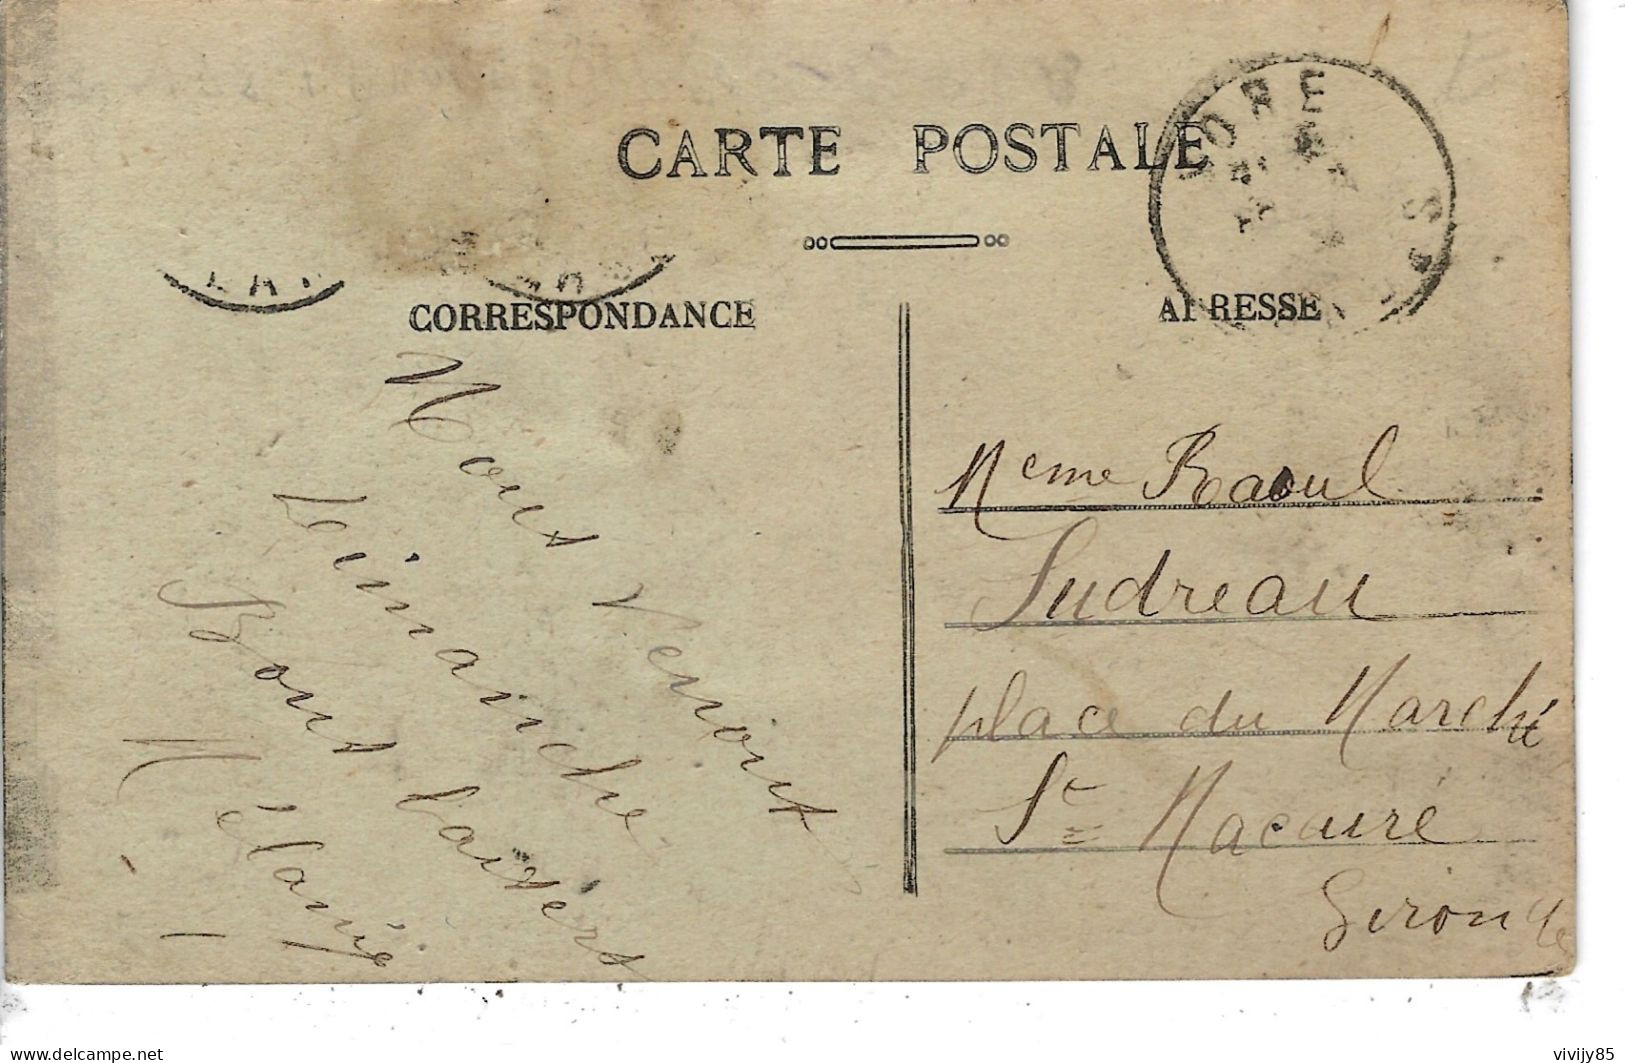 CARTE POSTALE
CORRESPONDANCE
ADRESSE
Nous venons
Dimanche
Bons baisers
Mélanie
Meme Raoul
Sudreau
place du Marché
St Macaire
Gironde
vivijy85